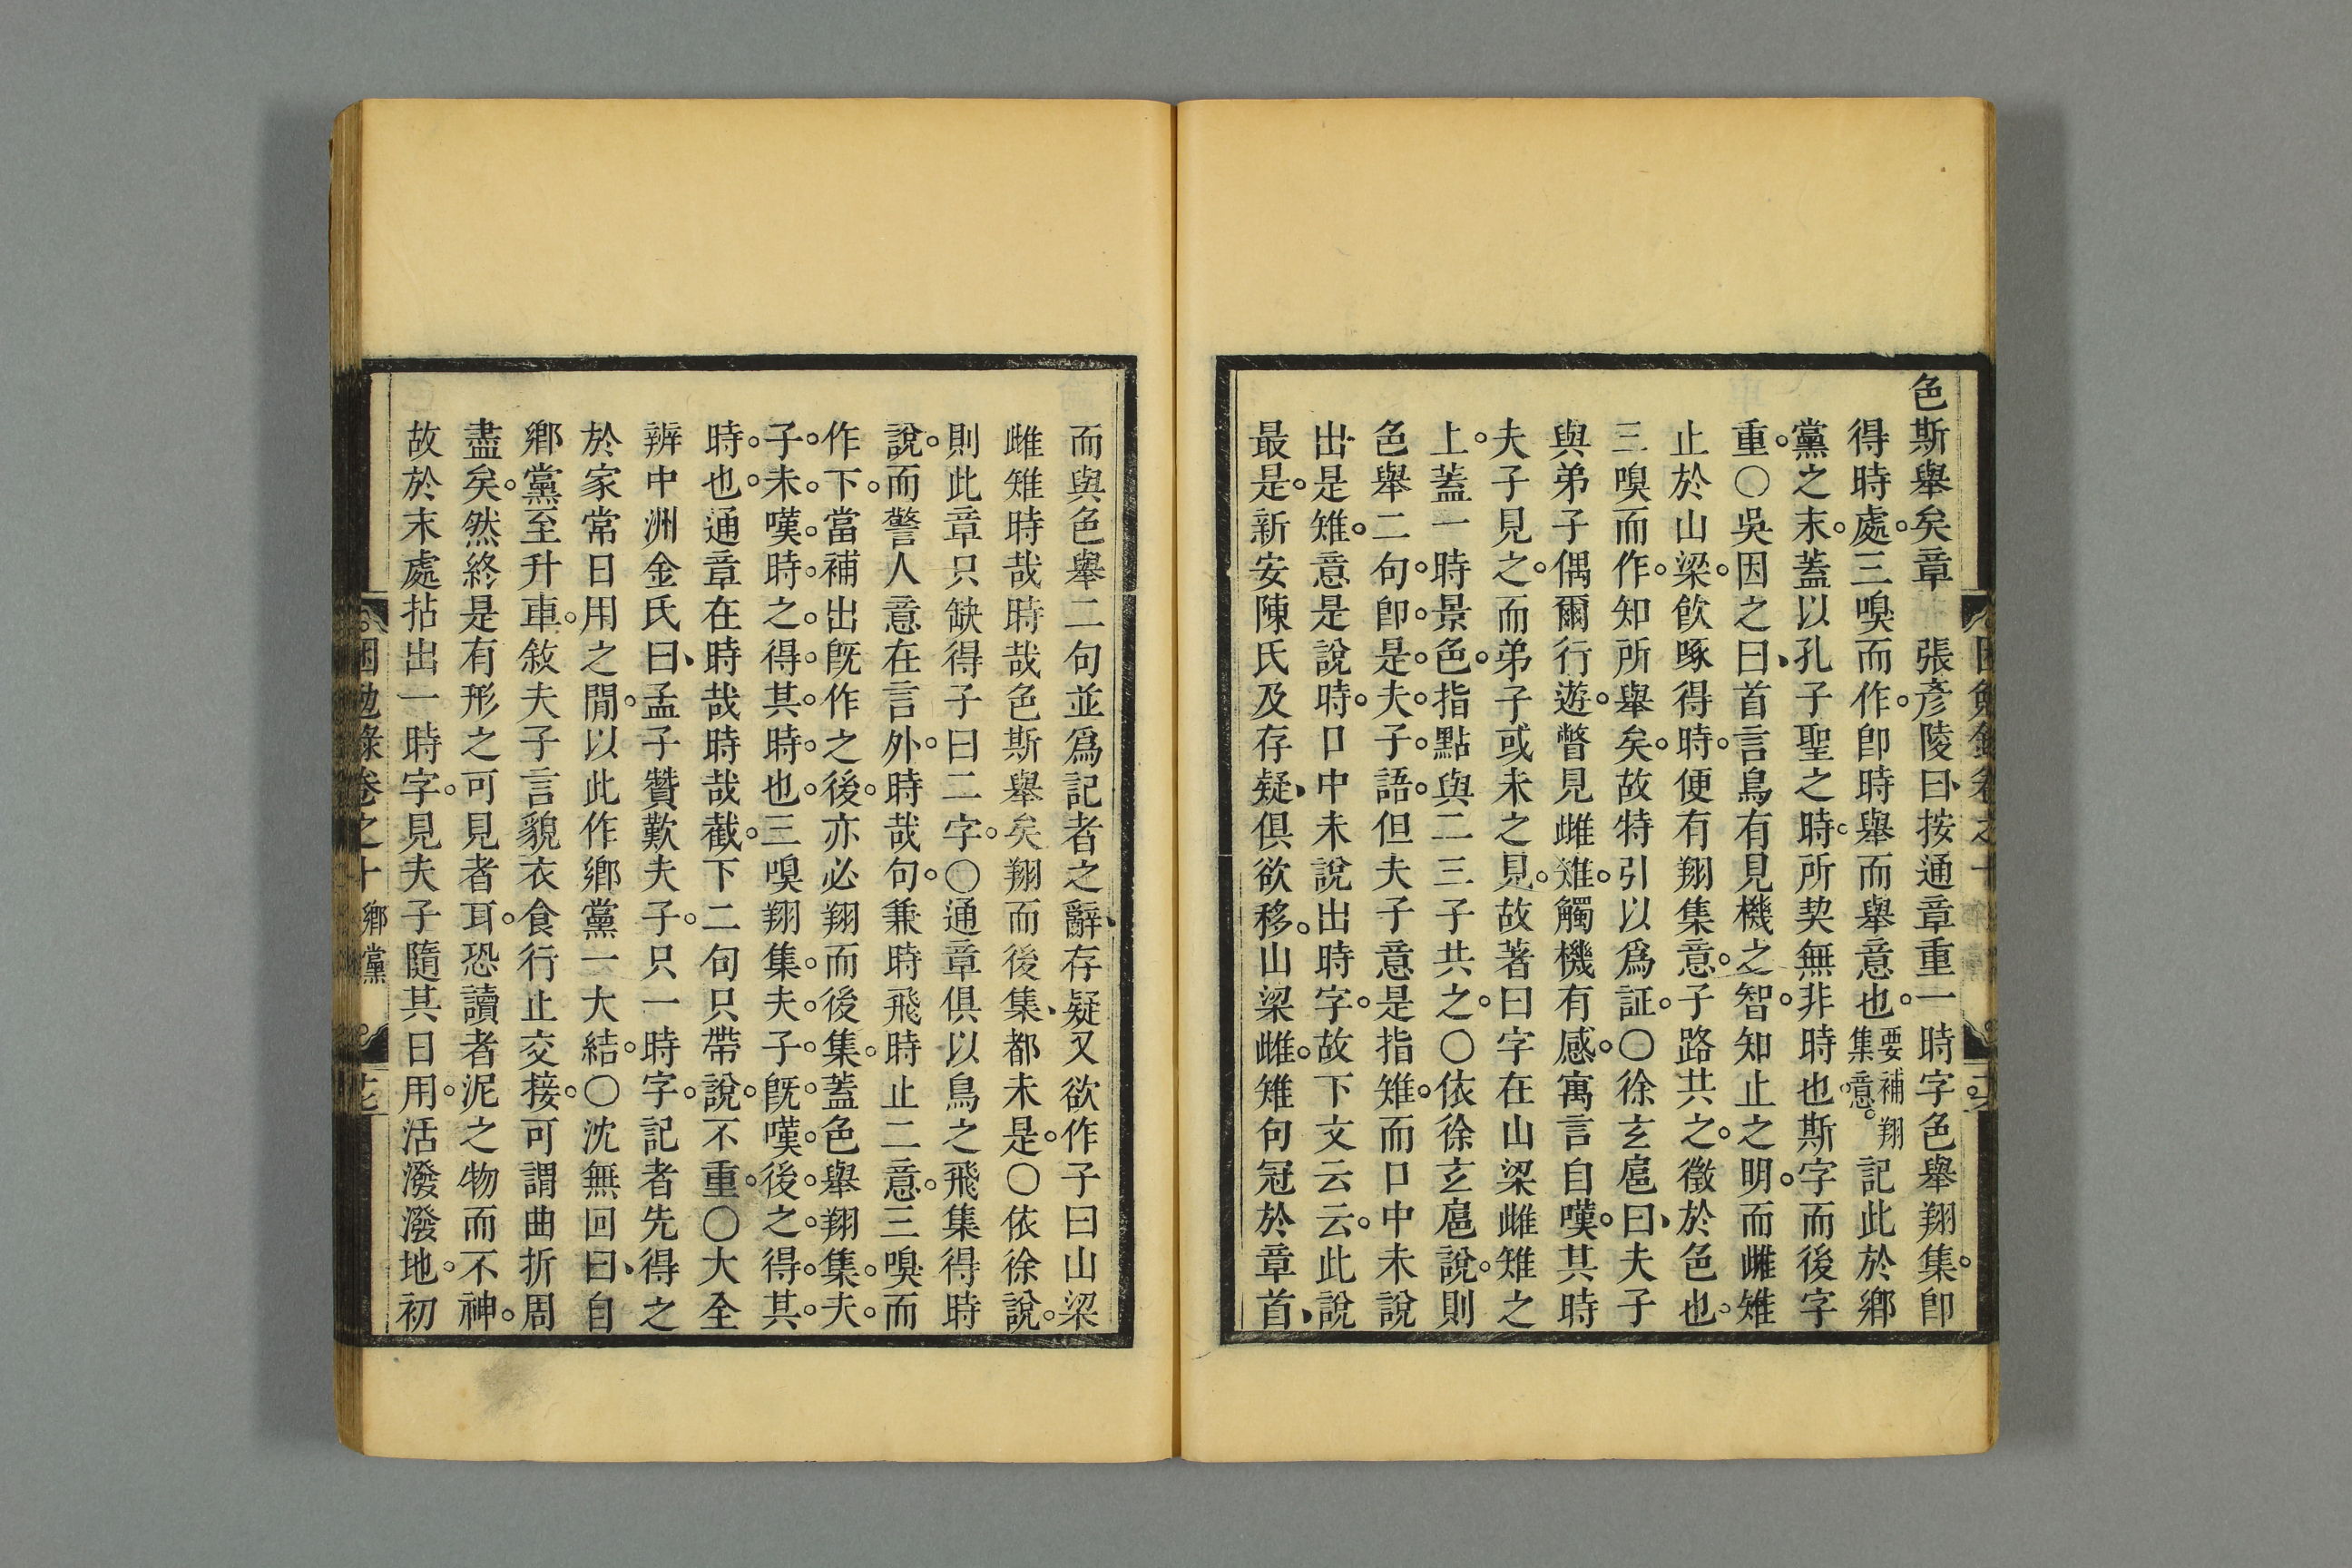 色斯舉矣章　張彥陵曰按通章重一時字色舉翔集。卽
得時處。三嗅而作。卽時舉而舉意也。要補翔集意。記此於鄉
黨之末。蓋以孔子聖之時。所契無非時也。斯字而後字
重。○吳因之曰、首言鳥有見機之智。知止之明。而雌雉
止於山梁。飮啄得時。便有翔集意。子路共之。徵於色也。
三嗅而作。知所舉矣。故特引以爲証。○徐玄扈曰、夫子
與弟子偶爾行遊。瞥見雌雉。觸機有感。寓言自嘆。其時
夫子見之。而弟子或未之見。故著曰字在山梁雌雉之
上。蓋一時景色。指點與二三子共之。○依徐玄扈說。則
色舉二句。卽是夫子語。但夫子意是指雉。而口中未說
出是雉。意是說時。口中未說出時字。故下文云云。此說
最是。新安陳氏及存疑、俱欲移。山梁雌。雉句冠於章首、
而與色舉二句並爲記者之辭、存疑又欲作子曰山梁
雌雉時哉時哉色斯舉矣翔而後集、都未是。○依徐說。
則此章只缺得子曰二字。○通章俱以鳥之飛集得時
說。而警人意在言外。時哉句。兼時飛時止二意。三嗅而
作下。當補出旣作之後。亦必翔而後集。蓋色舉翔集。夫。
子。未。嘆。時。之。得。其。時。也。三嗅翔集。夫。子。旣。嘆。後。之。得。其。
時。也。通章在時哉時哉截。下二句只帶說。不重。○大全
辨中洲金氏曰、孟子贊歎夫子。只一時字。記者先得之
於家常日用之間。以此作鄉黨一大結。○沈無回曰、自
鄉黨至升車。敘夫子言貌衣食行止交接。可謂曲折周
盡矣。然終是有形之可見者耳。恐讀者泥之物而不神。
故於末處拈出一時字。見夫子隨其日用。活潑潑地。初
困勉錄卷之十　鄉黨